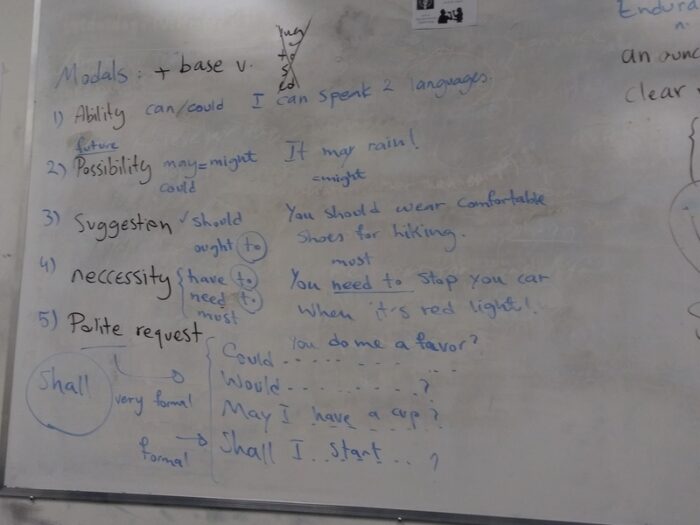 Modals: + base v.
ing
to
s
ed
1) Ability can/could I can speak 2 languages.
future
2) Possibility may=might It may rain!
could =might
3) Suggestion ✓ should You should wear comfortable
ought to shoes for hiking.
must
4) neccessity { have to You need to stop you car
need to when it's red light!
must
5) Polite request
Could you do me a favor?
Would ........ ?
Shall very formal May I have a cup ?
formal Shall I start ... ?
Endura
n.
an ounc
clear